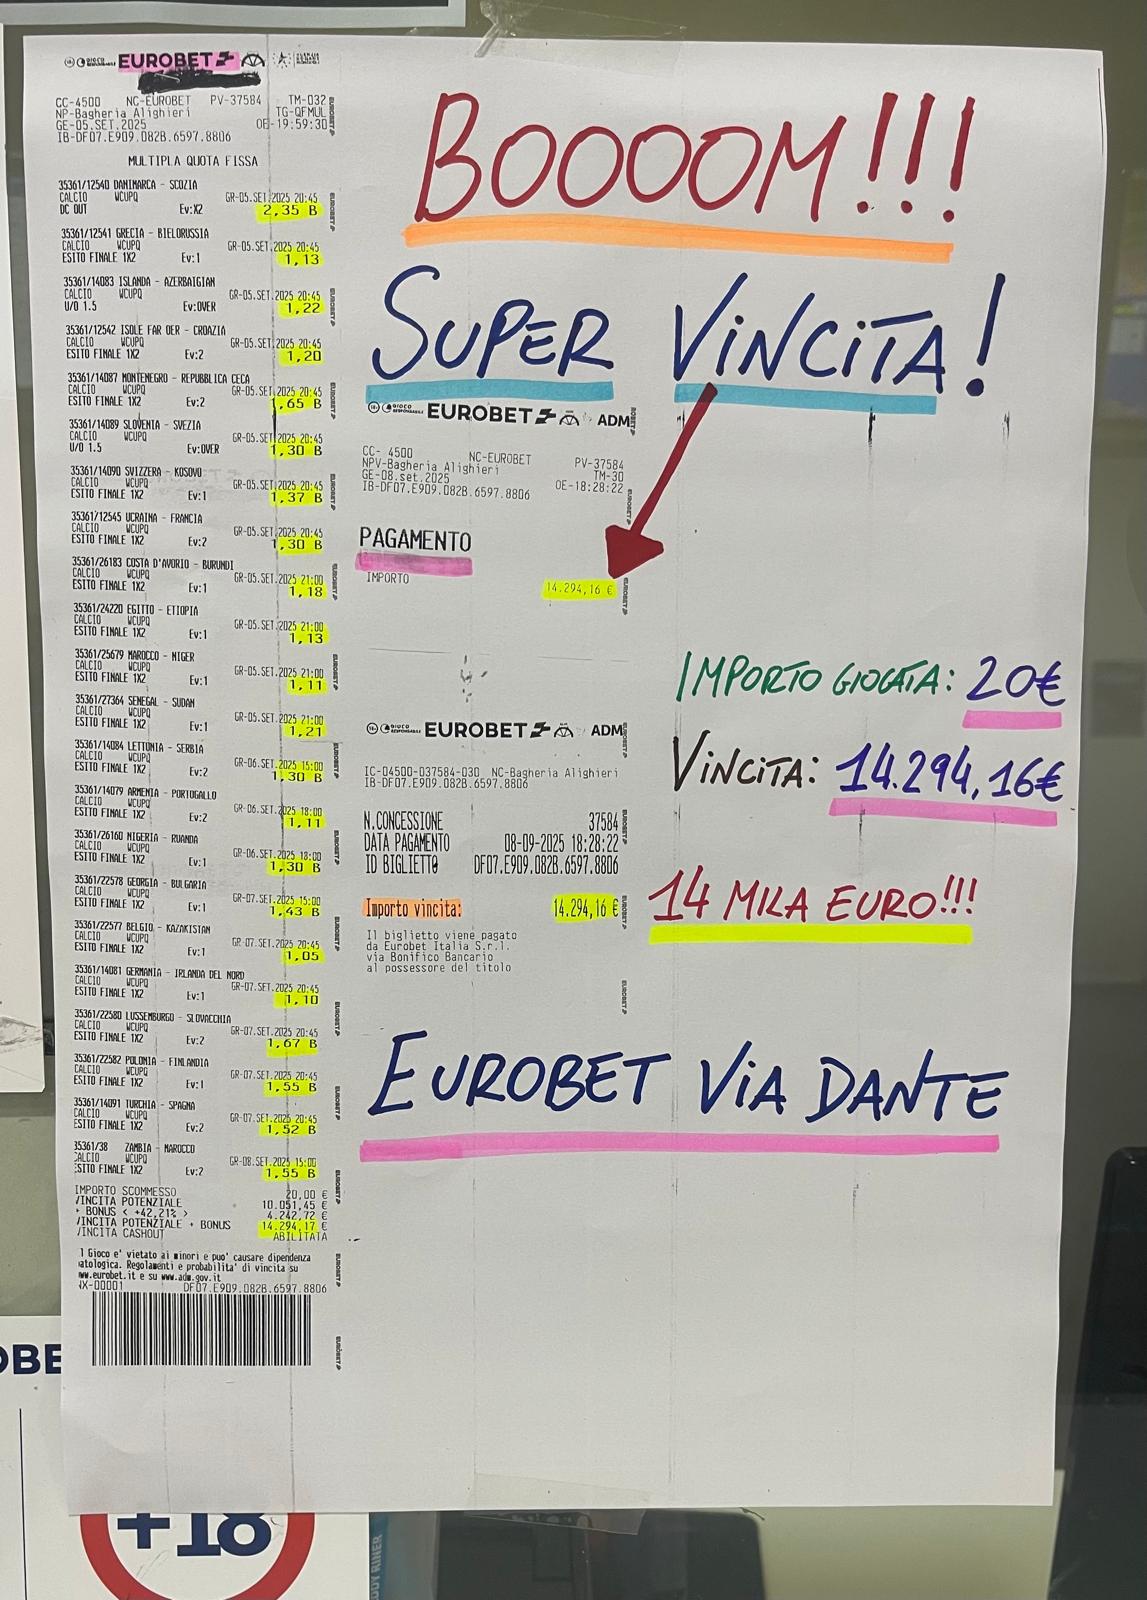 EUROBET
CC-4500 NC-EUROBET PV-37584 TM-032
NP-Bagheria Alighieri TG-QFMUL
GE-05.SET.2025 OE-19:59:30
IB-DF07.E909.082B.6597.8806
MULTIPLA QUOTA FISSA
35361/12540 DANIMARCA - SCOZIA
CALCIO WCUPQ GR-05.SET.2025 20:45
DC OUT Ev:X2 2,35 B
35361/12541 GRECIA - BIELORUSSIA
CALCIO WCUPQ GR-05.SET.2025 20:45
ESITO FINALE 1X2 Ev:1 1,13
35361/14083 ISLANDA - AZERBAIGIAN
CALCIO WCUPQ GR-05.SET.2025 20:45
U/O 1.5 Ev:OVER 1,22
35361/12542 ISOLE FAR OER - CROAZIA
CALCIO WCUPQ GR-05.SET.2025 20:45
ESITO FINALE 1X2 Ev:2 1,20
35361/14087 MONTENEGRO - REPUBBLICA CECA
CALCIO WCUPQ GR-05.SET.2025 20:45
ESITO FINALE 1X2 Ev:2 1,65 B
35361/14089 SLOVENIA - SVEZIA
CALCIO WCUPQ GR-05.SET.2025 20:45
U/O 1.5 Ev:OVER 1,30 B
35361/14090 SVIZZERA - KOSOVO
CALCIO WCUPQ GR-05.SET.2025 20:45
ESITO FINALE 1X2 Ev:1 1,37 B
35361/12545 UCRAINA - FRANCIA
CALCIO WCUPQ GR-05.SET.2025 20:45
ESITO FINALE 1X2 Ev:2 1,30 B
35361/26183 COSTA D'AVORIO - BURUNDI
CALCIO WCUPQ GR-05.SET.2025 21:00
ESITO FINALE 1X2 Ev:1 1,18
35361/24220 EGITTO - ETIOPIA
CALCIO WCUPQ GR-05.SET.2025 21:00
ESITO FINALE 1X2 Ev:1 1,13
35361/25679 MAROCCO - NIGER
CALCIO WCUPQ GR-05.SET.2025 21:00
ESITO FINALE 1X2 Ev:1 1,11
35361/27364 SENEGAL - SUDAN
CALCIO WCUPQ GR-05.SET.2025 21:00
ESITO FINALE 1X2 Ev:1 1,21
35361/14084 LETTONIA - SERBIA
CALCIO WCUPQ GR-06.SET.2025 15:00
ESITO FINALE 1X2 Ev:2 1,30 B
35361/14079 ARMENIA - PORTOGALLO
CALCIO WCUPQ GR-06.SET.2025 18:00
ESITO FINALE 1X2 Ev:2 1,11
35361/26160 NIGERIA - RUANDA
CALCIO WCUPQ GR-06.SET.2025 18:00
ESITO FINALE 1X2 Ev:1 1,30 B
35361/22578 GEORGIA - BULGARIA
CALCIO WCUPQ GR-07.SET.2025 15:00
ESITO FINALE 1X2 Ev:1 1,43 B
35361/22577 BELGIO - KAZAKISTAN
CALCIO WCUPQ GR-07.SET.2025 20:45
ESITO FINALE 1X2 Ev:1 1,05
35361/14081 GERMANIA - IRLANDA DEL NORD
CALCIO WCUPQ GR-07.SET.2025 20:45
ESITO FINALE 1X2 Ev:1 1,10
35361/22580 LUSSEMBURGO - SLOVACCHIA
CALCIO WCUPQ GR-07.SET.2025 20:45
ESITO FINALE 1X2 Ev:2 1,67 B
35361/22582 POLONIA - FINLANDIA
CALCIO WCUPQ GR-07.SET.2025 20:45
ESITO FINALE 1X2 Ev:1 1,55 B
35361/14091 TURCHIA - SPAGNA
CALCIO WCUPQ GR-07.SET.2025 20:45
ESITO FINALE 1X2 Ev:2 1,52 B
35361/38 ZAMBIA - MAROCCO
CALCIO WCUPQ GR-08.SET.2025 15:00
ESITO FINALE 1X2 Ev:2 1,55 B
IMPORTO SCOMMESSO 20,00 €
/INCITA POTENZIALE 10.051,45 €
+ BONUS < +42,21% > 4.242,72 €
/INCITA POTENZIALE + BONUS 14.294,17 €
/INCITA CASHOUT ABILITATA
l Gioco e' vietato ai minori e puo' causare dipendenza
atologica. Regolamenti e probabilita' di vincita su
ww.eurobet.it e su www.adm.gov.it
IX-00001 DF07.E909.082B.6597.8806
BOOOOM!!!
SUPER VINCITA!
EUROBET ADM
CC- 4500 NC-EUROBET PV-37584
NPV-Bagheria Alighieri TM-30
GE-08.set.2025 OE-18:28:22
IB-DF07.E909.082B.6597.8806
PAGAMENTO
IMPORTO 14.294,16 €
EUROBET ADM
IC-04500-037584-030 NC-Bagheria Alighieri
IB-DF07.E909.082B.6597.8806
N.CONCESSIONE 37584
DATA PAGAMENTO 08-09-2025 18:28:22
ID BIGLIETTO DF07.E909.082B.6597.8806
Importo vincita: 14.294,16 €
Il biglietto viene pagato
da Eurobet Italia S.r.l.
via Bonifico Bancario
al possessore del titolo
IMPORTO GIOCATA: 20€
VINCITA: 14.294,16€
14 MILA EURO!!!
EUROBET VIA DANTE
OBE
+18